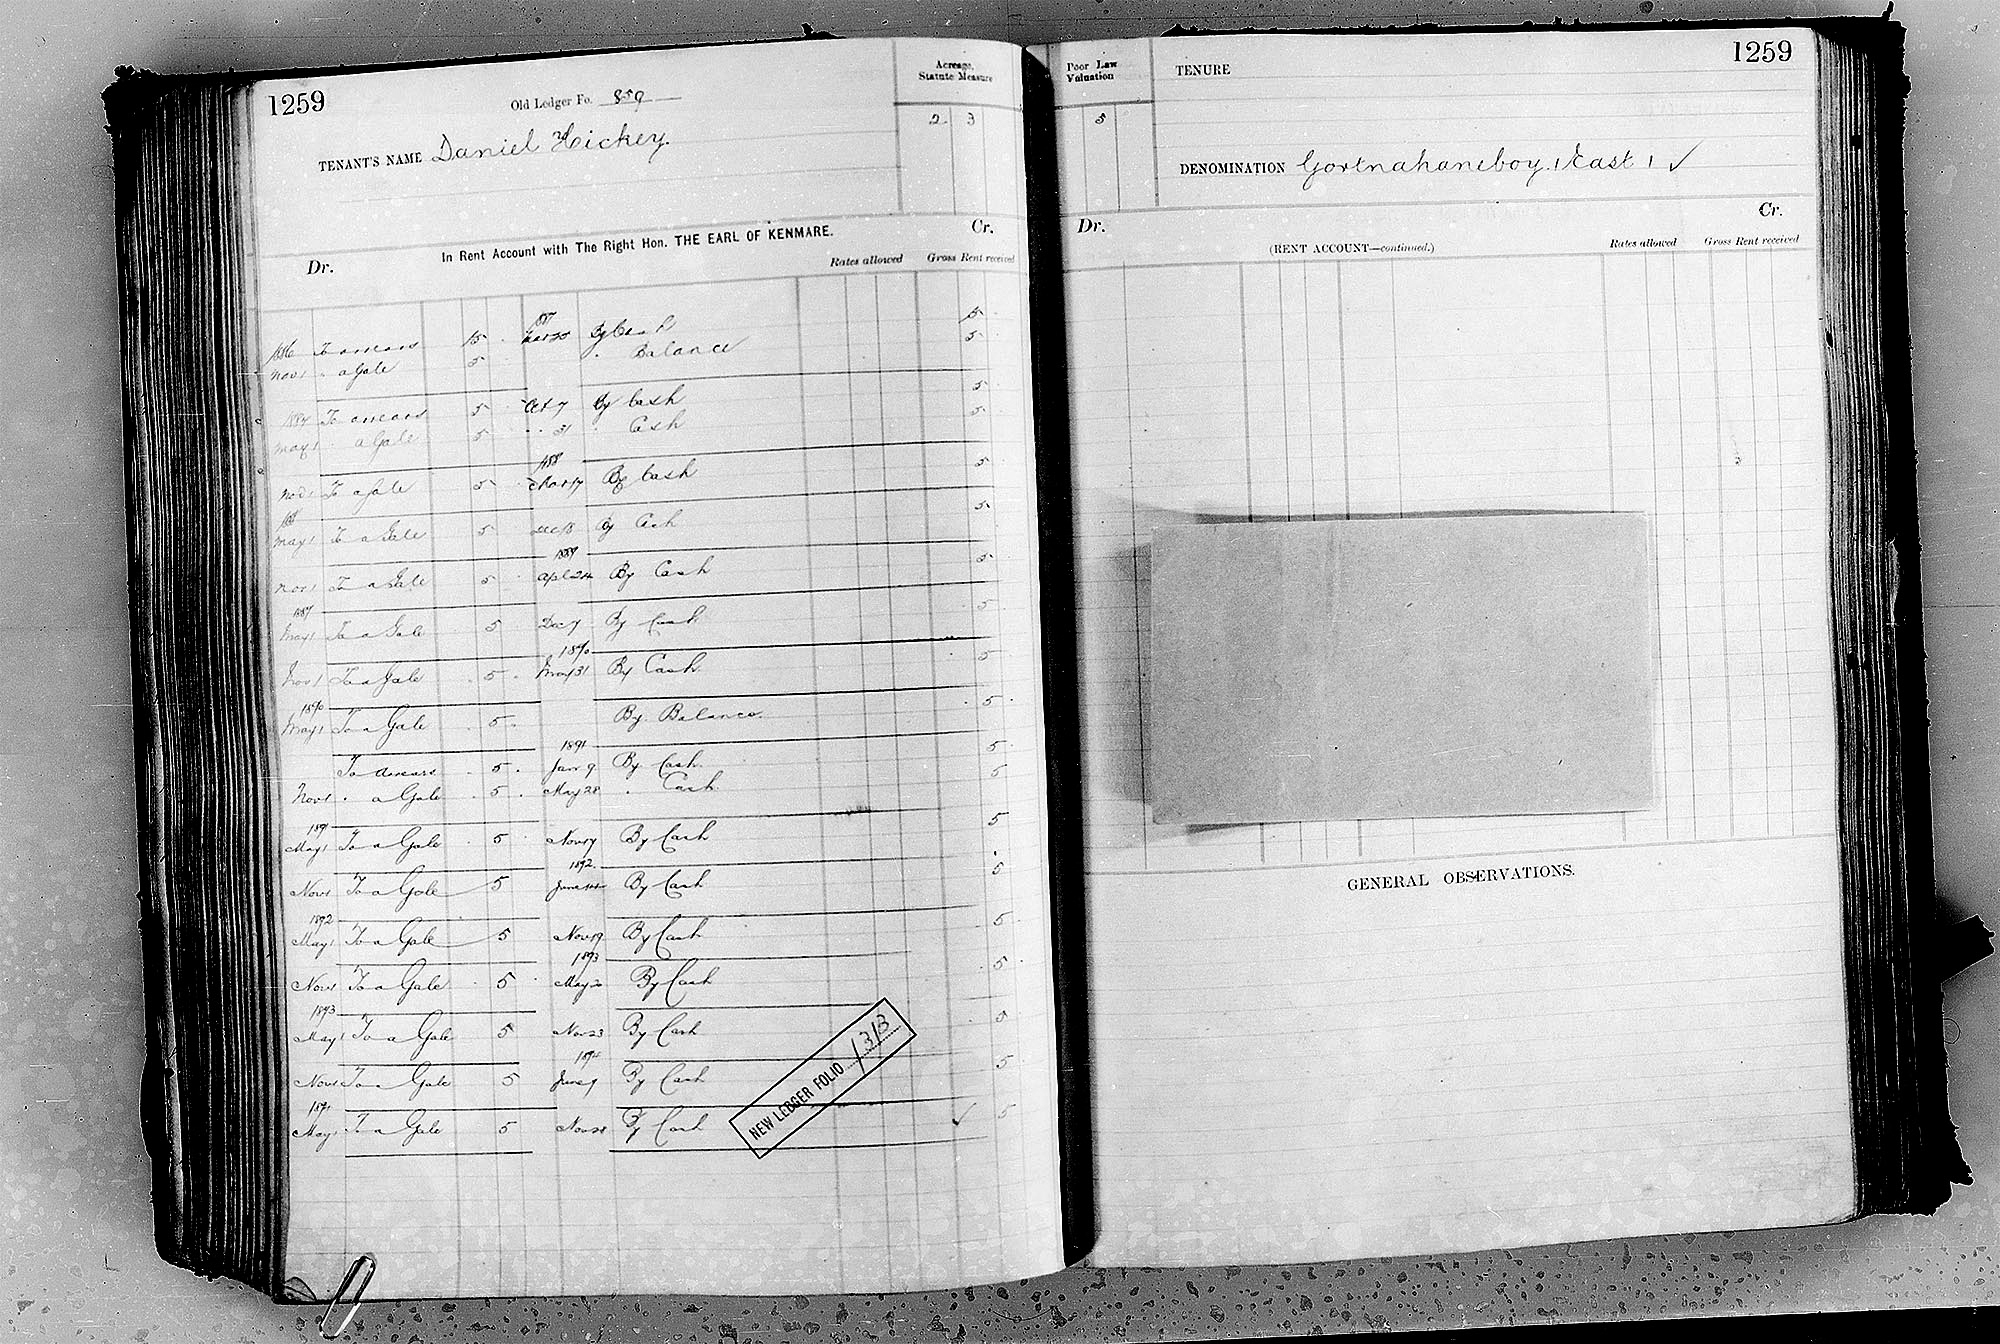 1259
Old Ledger Fo. 859
Acreage, Statute Measure
2 3
TENANT'S NAME Daniel Hickey.
In Rent Account with The Right Hon. THE EARL OF KENMARE.
Dr. Cr.
Rates allowed Gross Rent received
1886 To arrears 15 1887 By Cash 15
Nov 1 " a Gale 5 " Balance 5
To arrears 5 Oct 7 By Cash 5
May 1 a Gale 5 " 31 " Cash 5
Nov 1 To a Gale 5 1888 By Cash 5
May 1 To a Gale 5 Dec 18 By Cash 5
Nov 1 To a Gale 5 1889 Apl 24 By Cash 5
May 1 To a Gale 5 Dec 7 By Cash 5
Nov 1 To a Gale 5 1890 May 31 By Cash 5
1890 May 1 To a Gale 5 By Balance 5
To arrears 5 1891 Jan 9 By Cash 5
Nov 1 " a Gale 5 May 28 " Cash 5
1891 May 1 To a Gale 5 Nov 17 By Cash 5
Nov 1 To a Gale 5 1892 June 14 By Cash 5
1892 May 1 To a Gale 5 Nov 19 By Cash 5
Nov 1 To a Gale 5 1893 May 20 By Cash 5
1893 May 1 To a Gale 5 Nov 23 By Cash 5
Nov 1 To a Gale 5 1894 June 9 By Cash 5
1894 May 1 To a Gale 5 Nov 28 By Cash ✓ 5
NEW LEDGER FOLIO 1313
Poor Law Valuation
5
TENURE
1259
DENOMINATION Gortnahaneboy (East) ✓
Dr. Cr.
(RENT ACCOUNT—continued.)
Rates allowed Gross Rent received
GENERAL OBSERVATIONS.